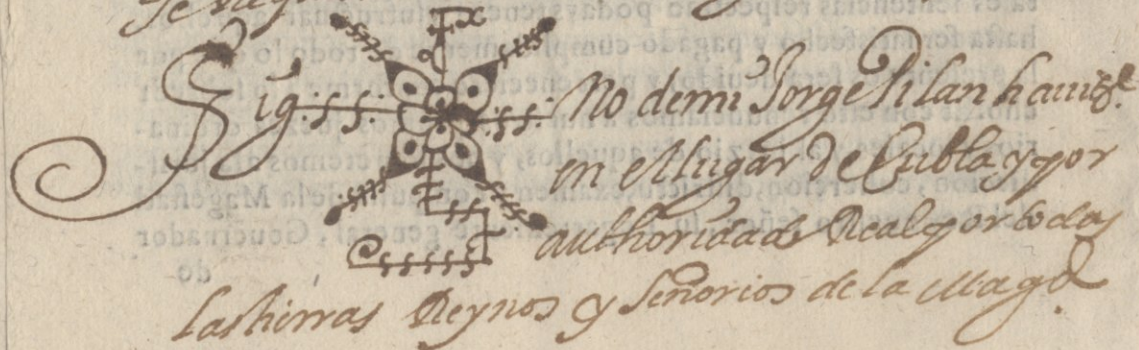 Sig: no de mi Jorge Pilan havite
en el lugar de Cubla y por
authoridade Real por todas
las tierras Reynos y Señorios de la Magd